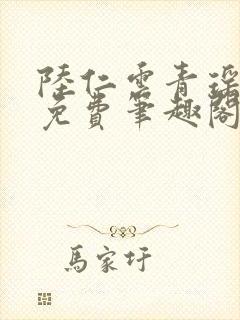 陸仁雲青瑶
免費筆趣閣
馬家圩